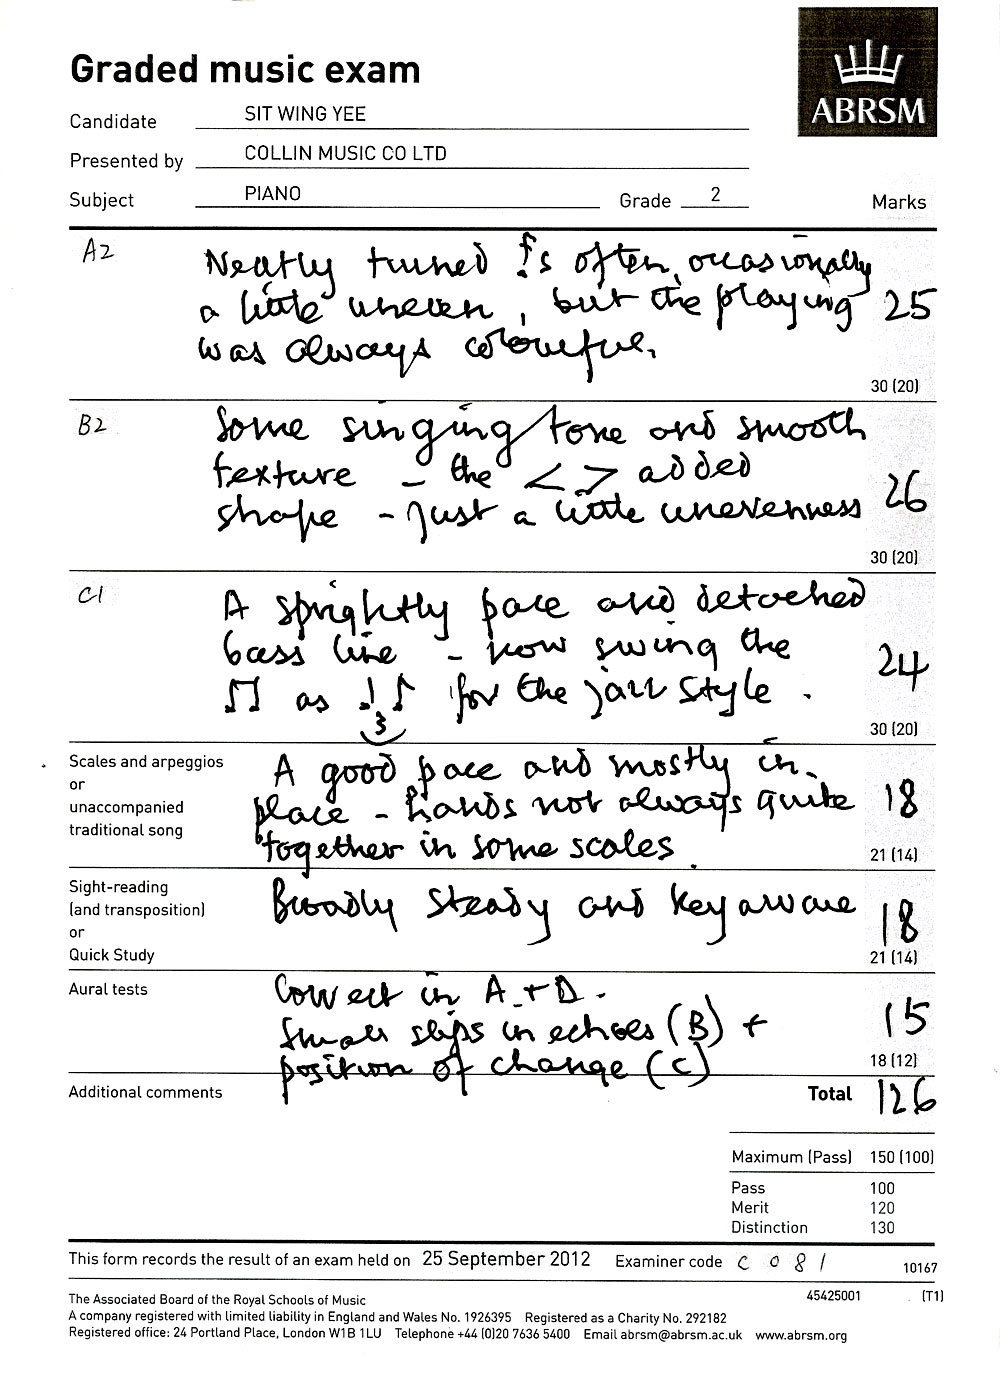 Graded music exam
ABRSM
Candidate SIT WING YEE
Presented by COLLIN MUSIC CO LTD
Subject PIANO Grade 2 Marks
A2 Neatly turned 𝅘𝅥𝅮s often, occasionally
a little uneven, but the playing 25
was always colourful.
30 (20)
B2 Some singing tone and smooth
texture – the < > added 26
shape – just a little unevenness
30 (20)
C1 A sprightly pace and detached
bass line – now swing the 24
♫ as ♩ ♪ for the jazz style.
3
30 (20)
Scales and arpeggios
or
unaccompanied
traditional song
A good pace and mostly in
place – hands not always quite 18
together in some scales.
21 (14)
Sight-reading
(and transposition)
or
Quick Study
Broadly steady and key aware 18
21 (14)
Aural tests Correct in A + D.
Small slips in echoes (B) + 15
position of change (C)
18 (12)
Additional comments Total 126
Maximum (Pass) 150 (100)
Pass 100
Merit 120
Distinction 130
This form records the result of an exam held on 25 September 2012 Examiner code C 081 10167
45425001 (T1)
The Associated Board of the Royal Schools of Music
A company registered with limited liability in England and Wales No. 1926395 Registered as a Charity No. 292182
Registered office: 24 Portland Place, London W1B 1LU Telephone +44 (0)20 7636 5400 Email abrsm@abrsm.ac.uk www.abrsm.org